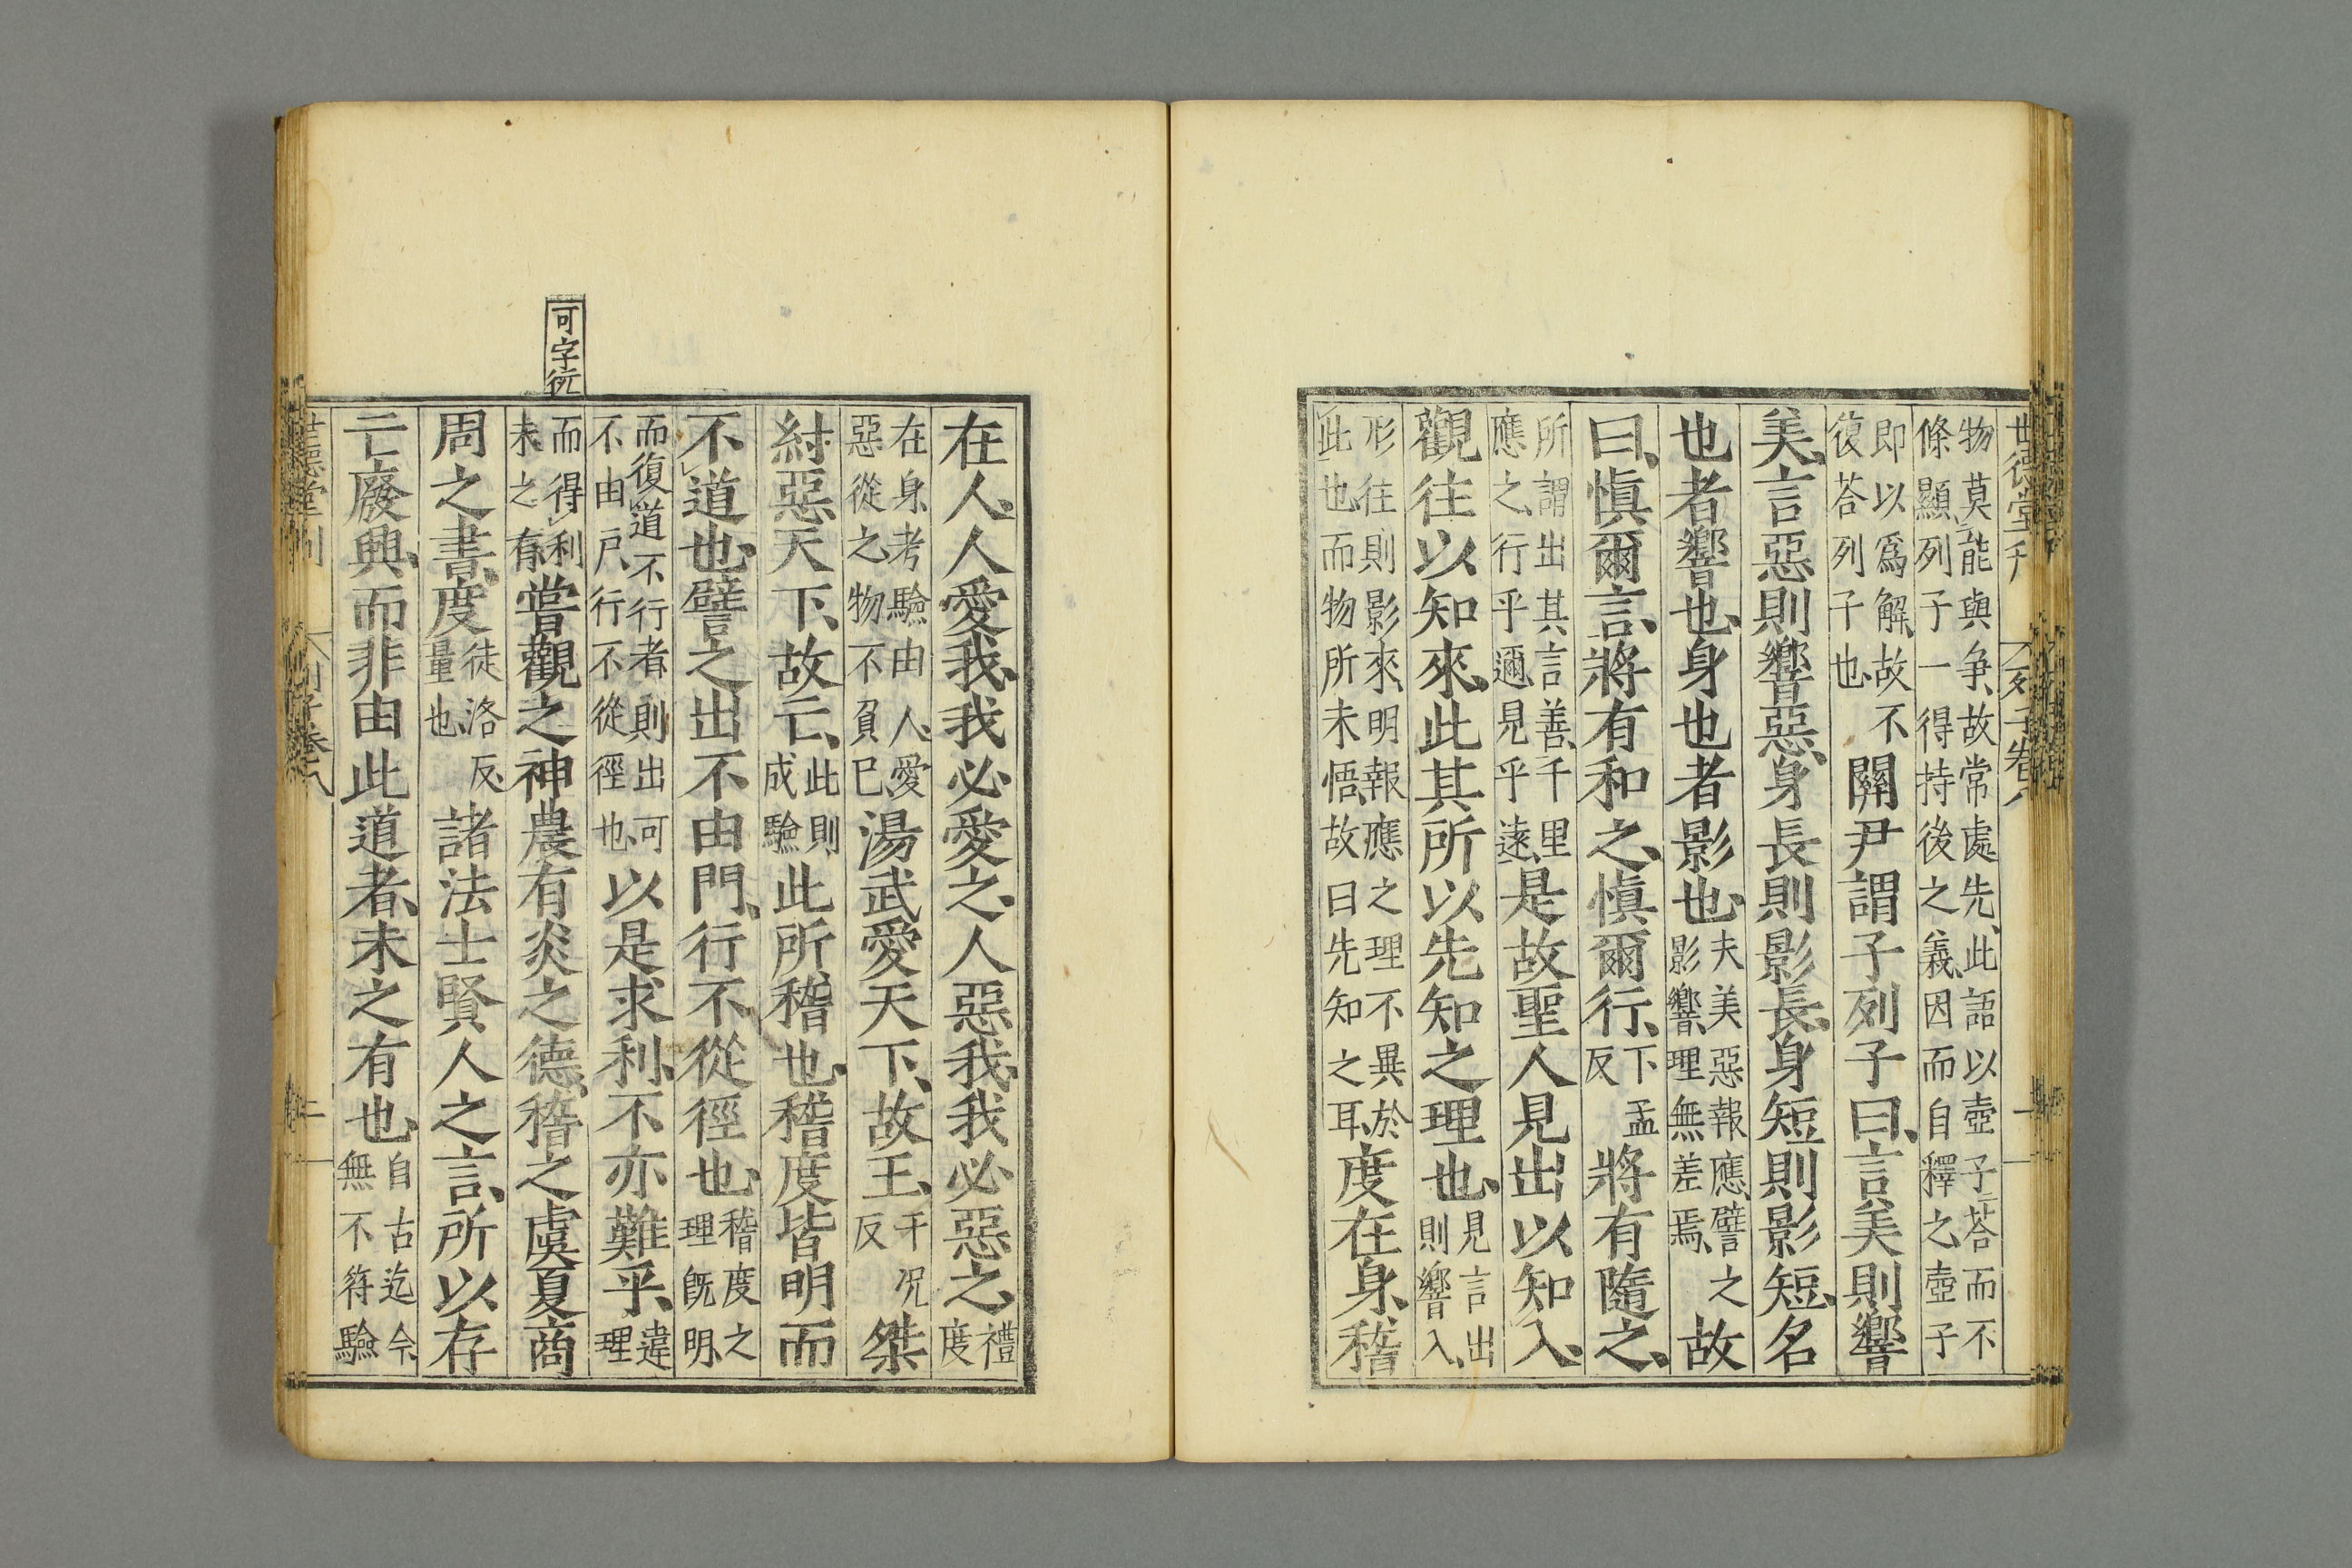 世德堂刊 列子卷八 一
物莫能與争、故常處先、此語以壺子荅而不
條顯、列子一得持後之義、因而自釋之、壺子
即以爲解、故不
復荅列子也、
關尹謂子列子曰、言美則響
美、言惡則響惡、身長則影長、身短則影短、名
也者響也、身也者影也、
夫美惡報應、譬之
影響、理無差焉、
故
曰、愼爾言、將有和之、愼爾行、
下孟
反
將有隨之、
所謂出其言善、千里
應之、行乎邇見乎遠、
是故聖人見出以知入、
觀往以知來、此其所以先知之理也、
見言出
則響入、
形往則影來、明報應之理不異於
此也、而物所未悟、故曰先知之耳、
度在身、稽
在人、人愛我、我必愛之、人惡我、我必惡之、
禮
度
在身、考驗由人、愛
惡從之、物不負已
湯武愛天下、故王、
于況
反
桀
紂惡天下、故亡、
此則
成驗
此所稽也、稽度皆明而
不道也、譬之出不由門、行不從徑也、
稽度之
理旣明、
而復道不行者、則出可
不由戶、行不從徑也、
以是求利、不亦難乎、
違
理
而得利
未之有、
嘗觀之神農有炎之德、稽之虞夏商
周之書、度
徒洛反、
量也、
諸法士賢人之言、所以存
亡廢興、而非由此道者、未之有也、
自古迄今、
無不符驗
可字衍
世德堂刊 列子卷八 二